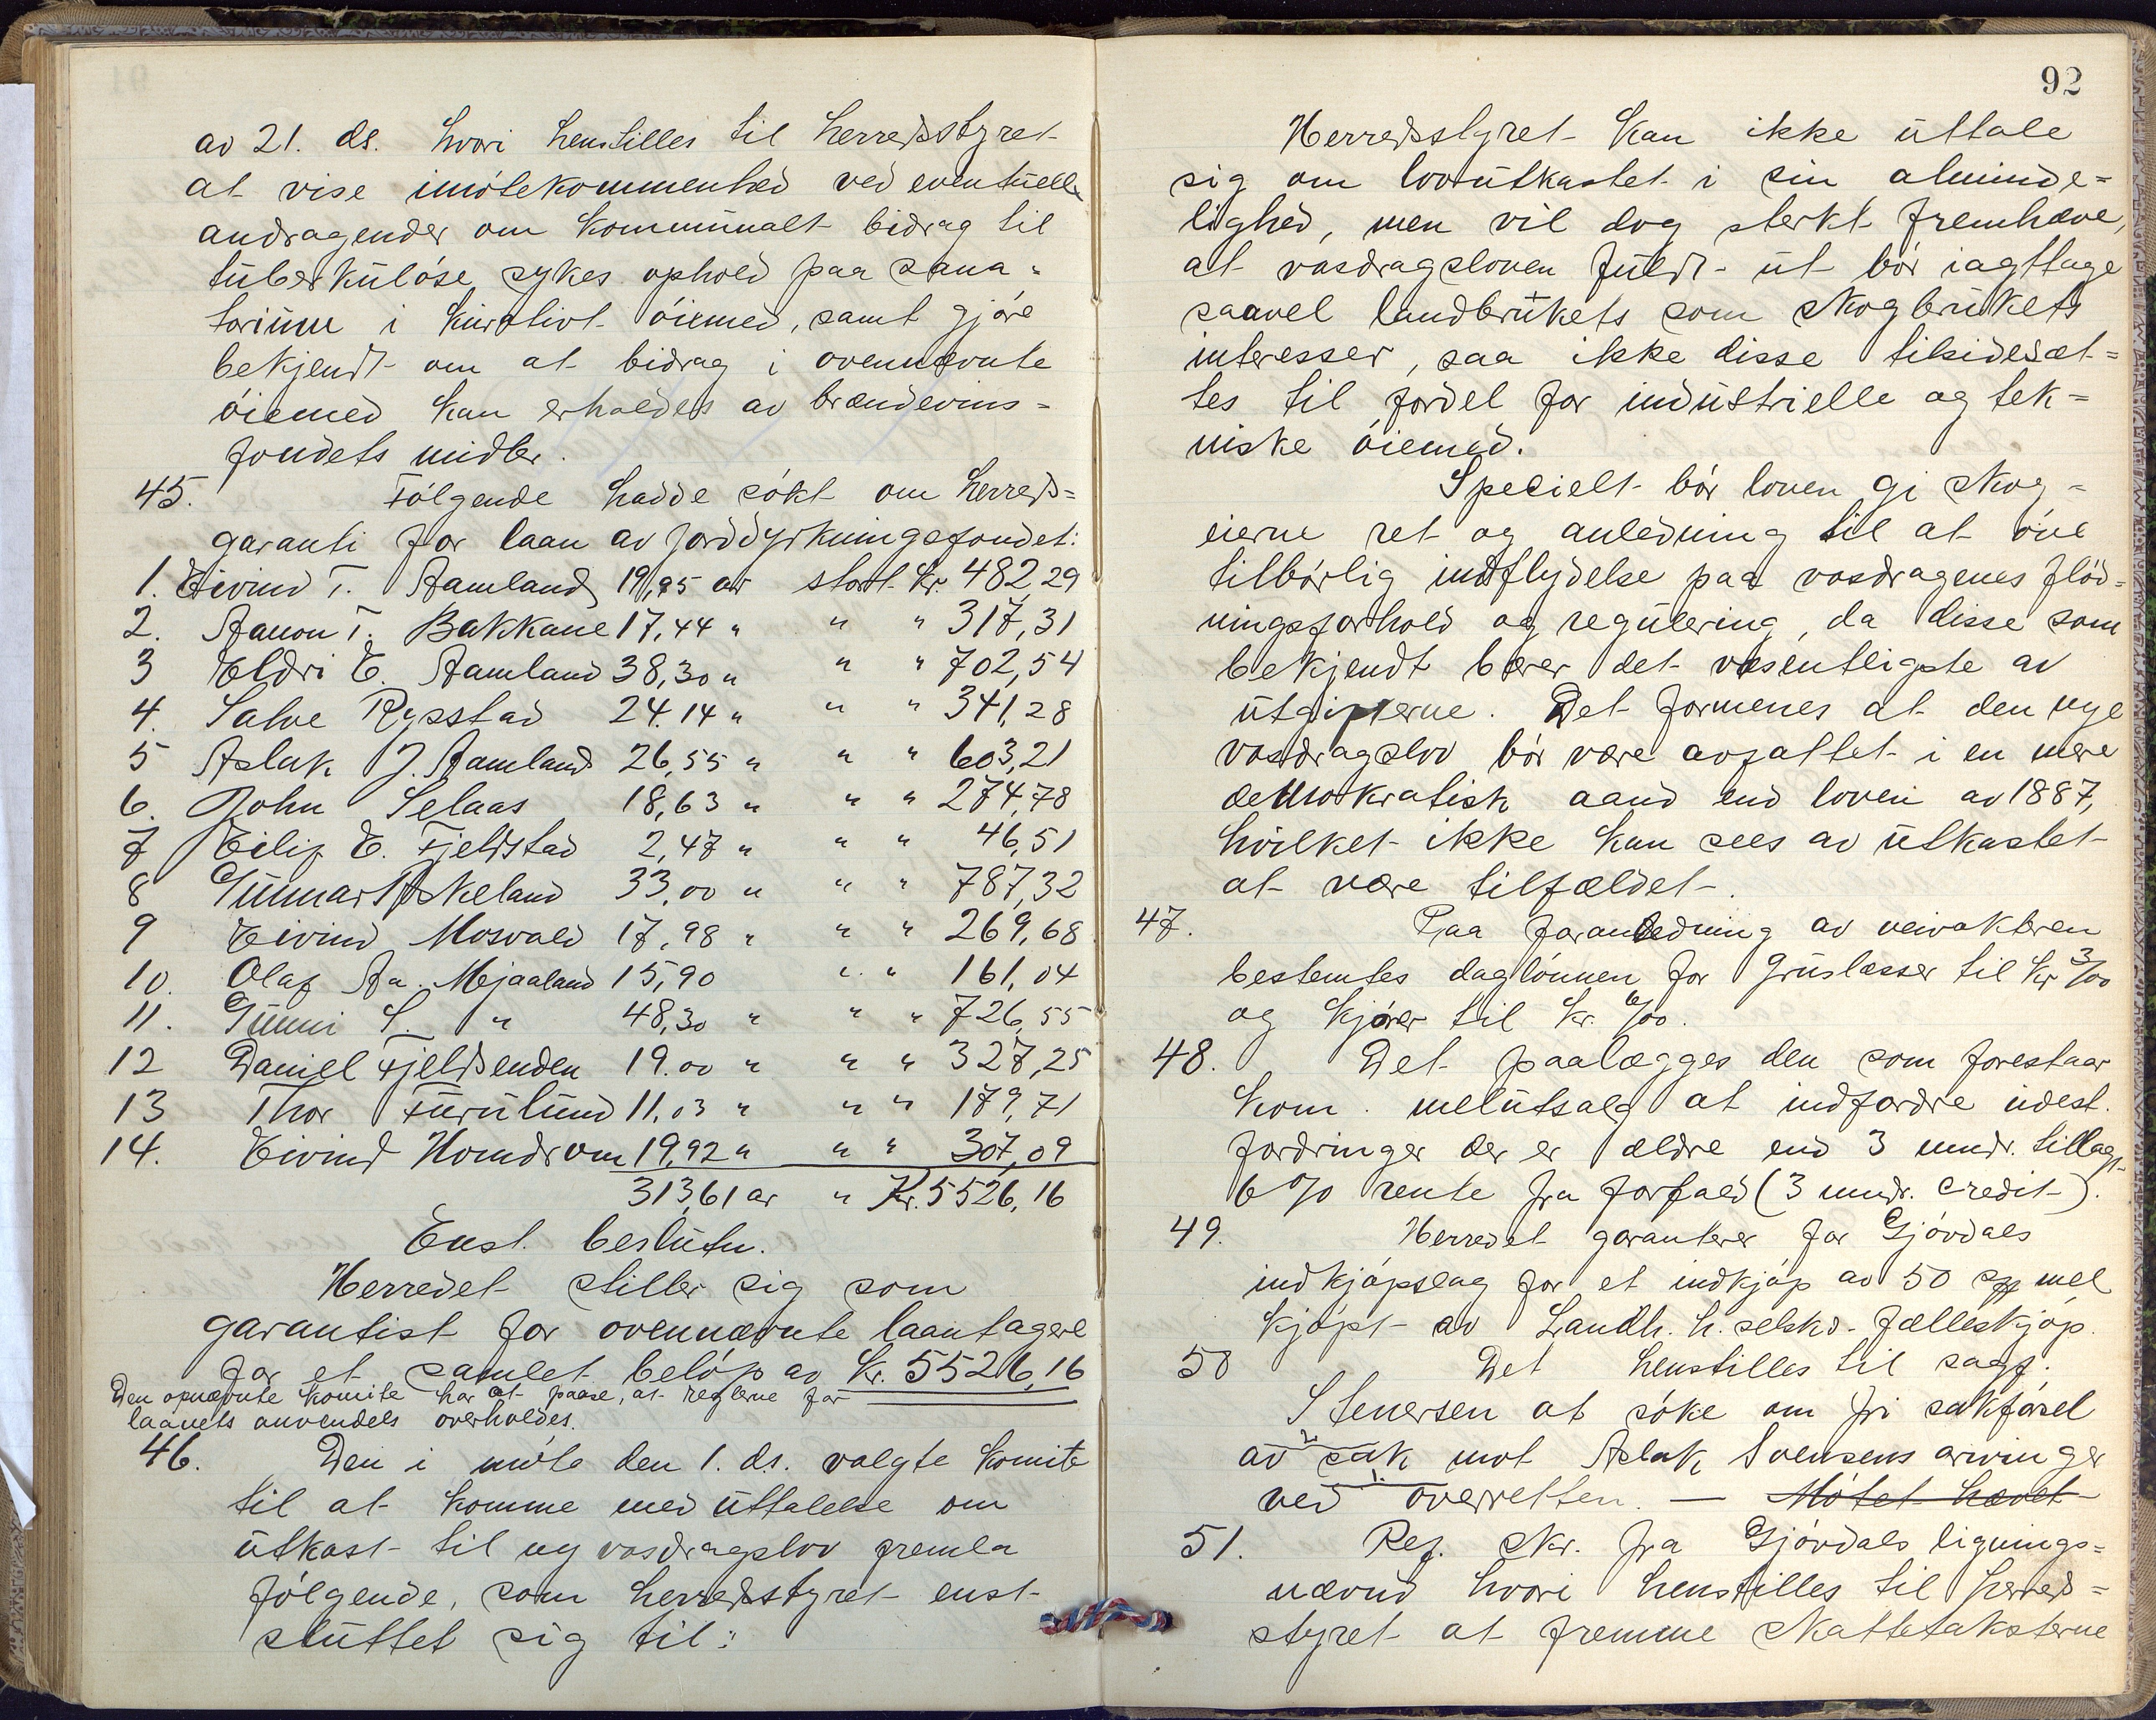 av 21. ds. hvori henstilles til herredsstyret
at vise imötekommenhed ved eventuelle
andragender om kommunalt bidrag til
tuberkulöse sykes ophold paa sana=
torium i kurativt öiemed, samt gjöre
bekjendt om at bidrag i ovennævnte
öiemed kan erholdes av brændevins=
fondets midler.
45. Fölgende hadde sökt om herreds=
garanti for laan av jorddyrkningsfondet:
1. Eivind T. Aamland 19,95 ar stort. Kr. 482,29
2. Aanon T. Bakkane 17,44 " " " 317,31
3 Eldri E. Aamland 38,30 " " " 702,54
4. Salve Rysstad 24.14 " " " 341,28
5 Aslak J. Aamland 26,55 " " " 603,21
6. John Selaas 18,63 " " " 274,78
7 Eilif E. Fjeldstad 2,47 " " " 46,51
8 Gunnar Askeland 33,00 " " " 787,32
9 Eivind Mosvald 17,98 " " " 269,68
10. Olaf Aa. Mjaaland 15,90 " " 161,04
11. Gunni S. " 48,30 " " " 726,55
12 Daniel Fjeldsenden 19.00 " " " 327,25
13 Thor Furulund 11,03 " " " 179,71
14. Eivind Homdrom 19,92 " " " 307,09
313,61 ar " Kr. 5526,16
Enst. beslutn.
Herredet stiller sig som
garantist for ovennævnte laantagere
for et samlet belöp av Kr. 5526,16
Den opnævnte komite har at paase, at reglerne for
laanets anvendels overholdes.
46. Den i möte den 1. ds. valgte komite
til at komme med uttalelse om
utkast til ny vasdragslov fremla
fölgende, som herredsstyret enst.
sluttet sig til:
92
Herredsstyret kan ikke uttale
sig om lovutkastet i sin alminde=
lighed, men vil dog sterkt fremhæve,
at vasdragsloven fuldt ut bör iagttage
saavel landbrukets som skogbrukets
interesser, saa ikke disse tilsidesæt=
tes til fordel for industrielle og tek=
niske öiemed.
Specielt bör loven gi skog=
eierne ret og anledning til at öve
tilbörlig indflydelse paa vasdragenes flöd=
ningsforhold og regulering, da disse som
bekjendt bærer det væsentligste av
utgifterne. Det formenes at den nye
vasdragslov bör være avfattet i en mere
demokratisk aand end loven av 1887,
hvilket ikke kan sees av utkastet
at være tilfældet.
47. Paa foranledning av veivokteren
bestemtes daglönnen for gruslæsser til Kr 3/00
og kjörer til Kr. 6/00.
48. Det paalægges den som forestaar
kom. melutsalg at indfordre utest.
fordringer der er ældre end 3 mndr. tillagt
6 % rente fra forfald (3 mndr. credit).
49. Herredet garanterer for Gjövdals
indkjöpslag for et indkjöp av 50 mel
kjöpt av Landh. h. selsks. fælleskjöp.
50 Det henstilles til sagf.
Stenersen at söke om fri sakförsel
2.
av sak mot Aslak Svensens arvinger
1.
ved overretten. — Mötet hævet
51. Ref. skr. fra Gjövdals lignings=
nævnd hvori henstilles til herreds=
styret at fremme skattetaksterne